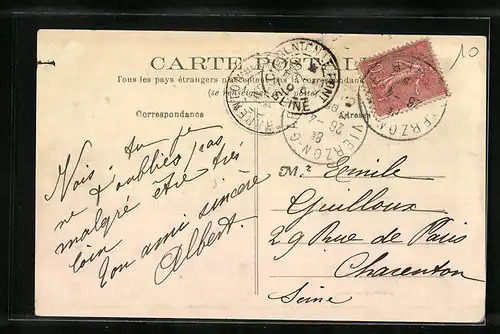 10
CARTE POSTALE
Tous les pays étrangers n'acceptent pas la correspondance
(se renseigner à la poste)
Correspondance
Adresse
VIERZON-GARE
Nois tu je
ne t'oublies pas
malgré être très
loin
Ton ami sincère
Albert.
Mr Emile
Guilloux
29 Rue de Paris
Charenton
Seine